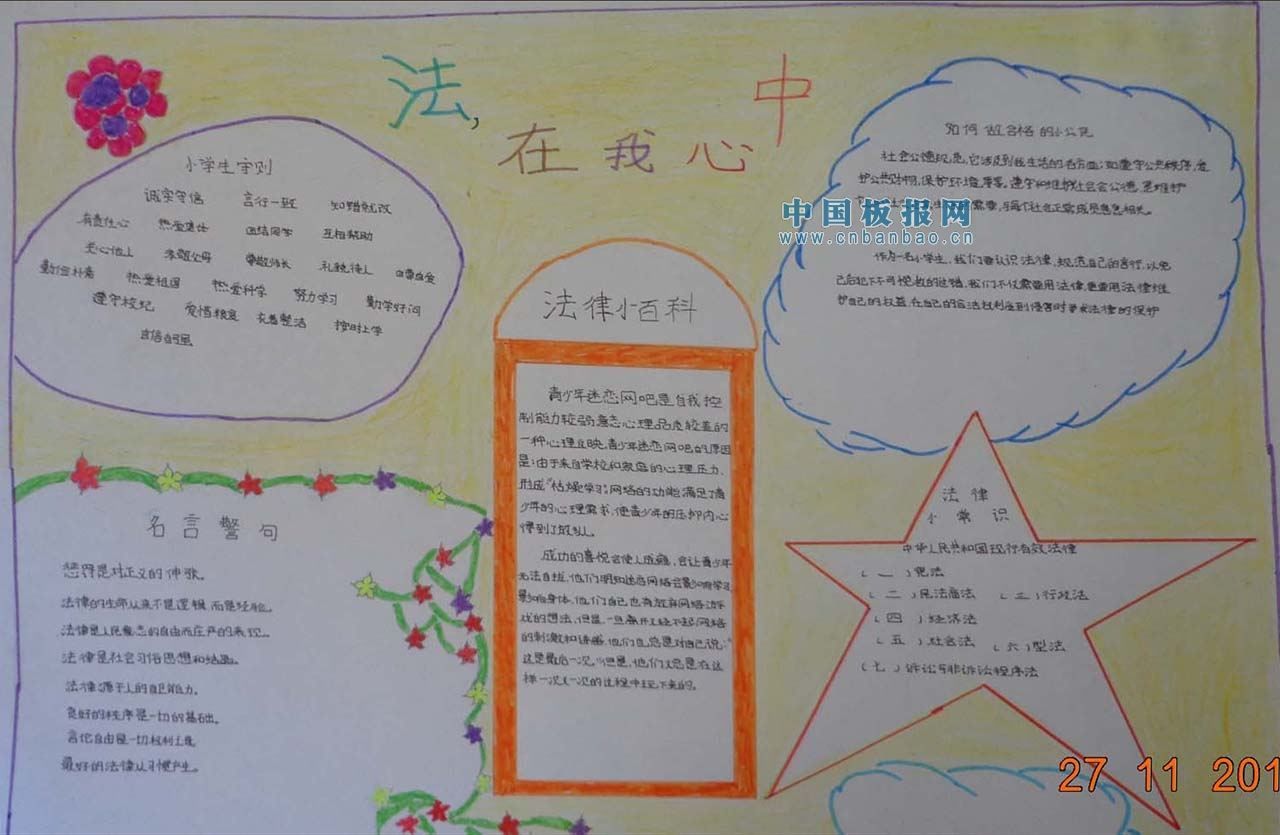 法,在我心中
小学生守则
诚实守信 言行一致 知错就改
有责任心 热爱集体 团结同学 互相帮助
关心他人 孝敬父母 尊敬师长 礼貌待人 自尊自爱
勤俭朴素 热爱祖国 热爱科学 努力学习 勤学好问
遵守校纪 爱惜粮食 衣着整洁 按时上学
自信自强
名言警句
惩罚是对正义的伸张。
法律的生命从来不是逻辑,而是经验。
法律是人民意志的自由而庄严的表现。
法律是社会习俗思想和结晶。
法律源于人的自卫能力。
良好的秩序是一切的基础。
言论自由是一切权利之母
最好的法律从习惯产生。
法律小百科
青少年迷恋网吧是自我控
制能力较弱,意志心理品质较差的
一种心理反映,青少年迷恋网吧的原因
是:由于来自学校和家庭的心理压力,
形成“枯燥学习”,网络的功能满足了青
少年的心理需求,使青少年的压抑内心
得到了放纵。
成功的喜悦会使人成瘾,会让青少年
无法自拔,他们明知迷恋网络会影响学习
影响身体,他们自己也有放弃网络游
戏的想法,但是,一旦离开经不起网络
的刺激和诱惑,他们也总是对自己说:“
这是最后一次”,但是,他们又总是在这
样一次又一次的过程中玩下来的。
如何做合格的小公民
社会公德规范,它涉及到我生活的各方面:如遵守公共秩序,爱
护公共财物,保护环境,等等。遵守和维护社会公德,是维护
需要,与每个社会正常成员息息相关。
作为一名小学生,我们要认识法律,规范自己的言行,以免
己犯下不可挽救的过错,我们不仅需要用法律,更要用法律维
护自己的权益,在自己的合法权利受到侵害时寻求法律的保护
中国板报网
www.cnbanbao.cn
法律
小常识
中华人民共和国现行有效法律
(一)宪法
(二)民法商法 (三)行政法
(四)经济法
(五)社会法 (六)型法
(七)诉讼与非诉讼程序法
27 11 201